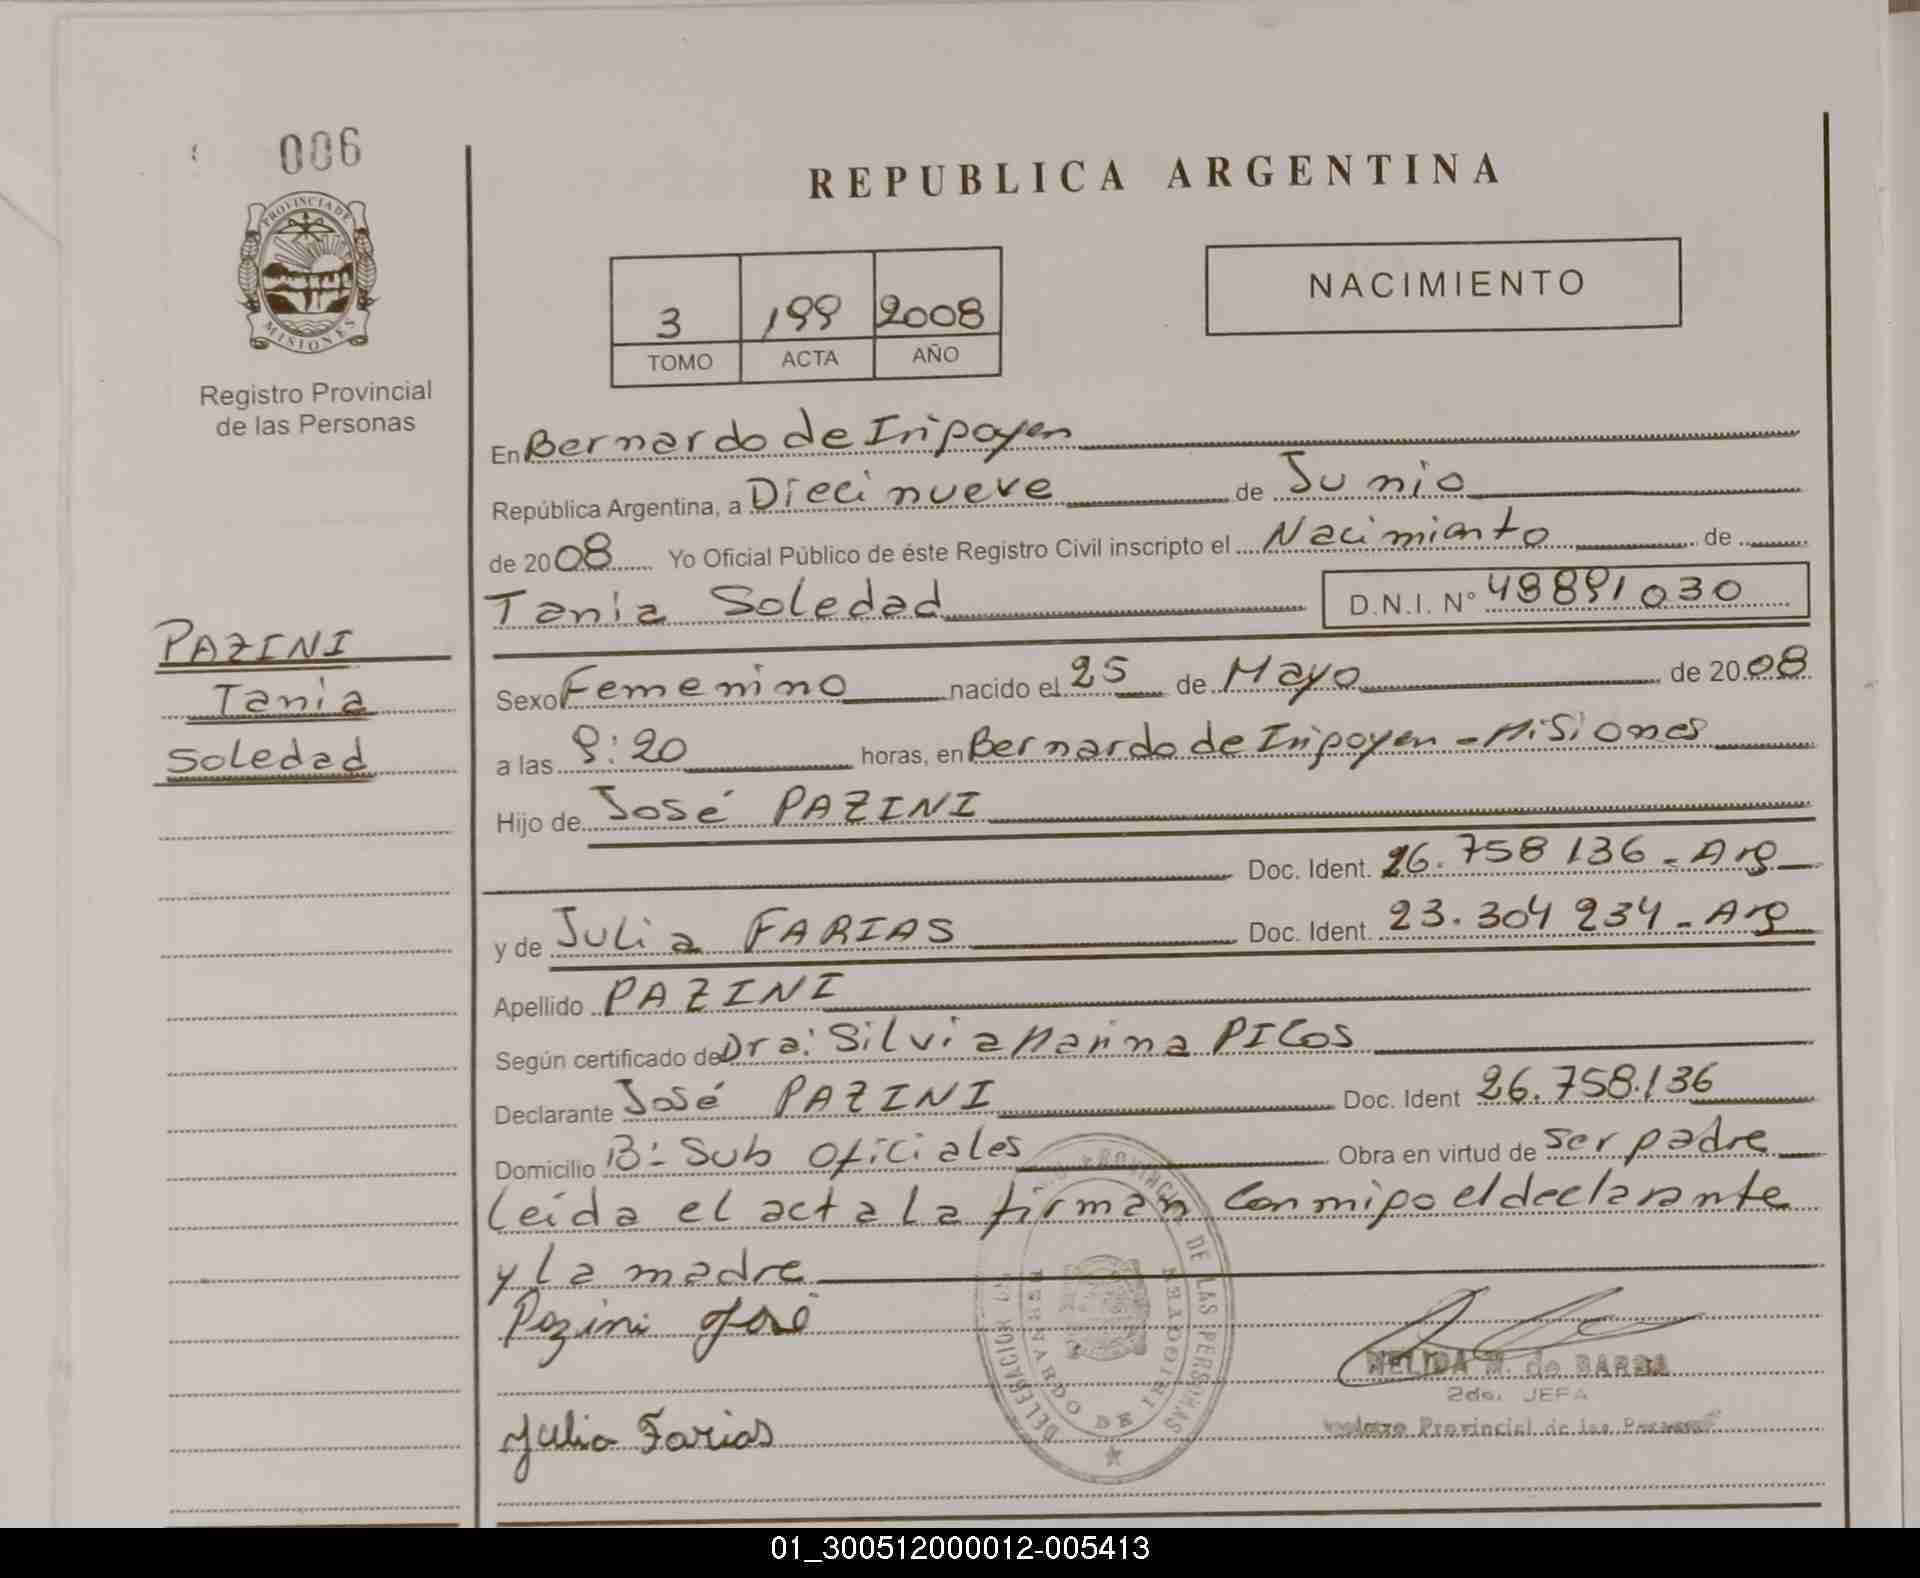 006
PROVINCIA DE
MISIONES
Registro Provincial
de las Personas
REPUBLICA ARGENTINA
3 199 2008
TOMO ACTA AÑO
NACIMIENTO
En Bernardo de Iripoyen
República Argentina, a Diecinueve de Junio
de 2008 Yo Oficial Público de éste Registro Civil inscripto el Nacimiento de
Tania Soledad D.N.I. N°
PAZINI
Tania
Soledad
Sexo Femenino nacido el 25 de Mayo de 2008
a las 9:20 horas, en Bernardo de Iripoyen - Misiones
Hijo de José PAZINI
Doc. Ident. 26.758 136 - Arg
y de Julia FARIAS Doc. Ident. 23.304 234 - Arg
Apellido PAZINI
Según certificado de Dra: Silvia Marina PICOS
Declarante José PAZINI Doc. Ident 26.758.136
Domicilio B: Sub Oficiales Obra en virtud de ser padre
Leída el acta la firman conmigo el declarante
y la madre
Pazini José
Julia Farias
NELIDA M. de BARBA
2do. JEFA
Provincial de las Personas
PROVINCIAL DE LAS PERSONAS
DELEGACION
BERNARDO DE IRIGOYEN
01_300512000012-005413